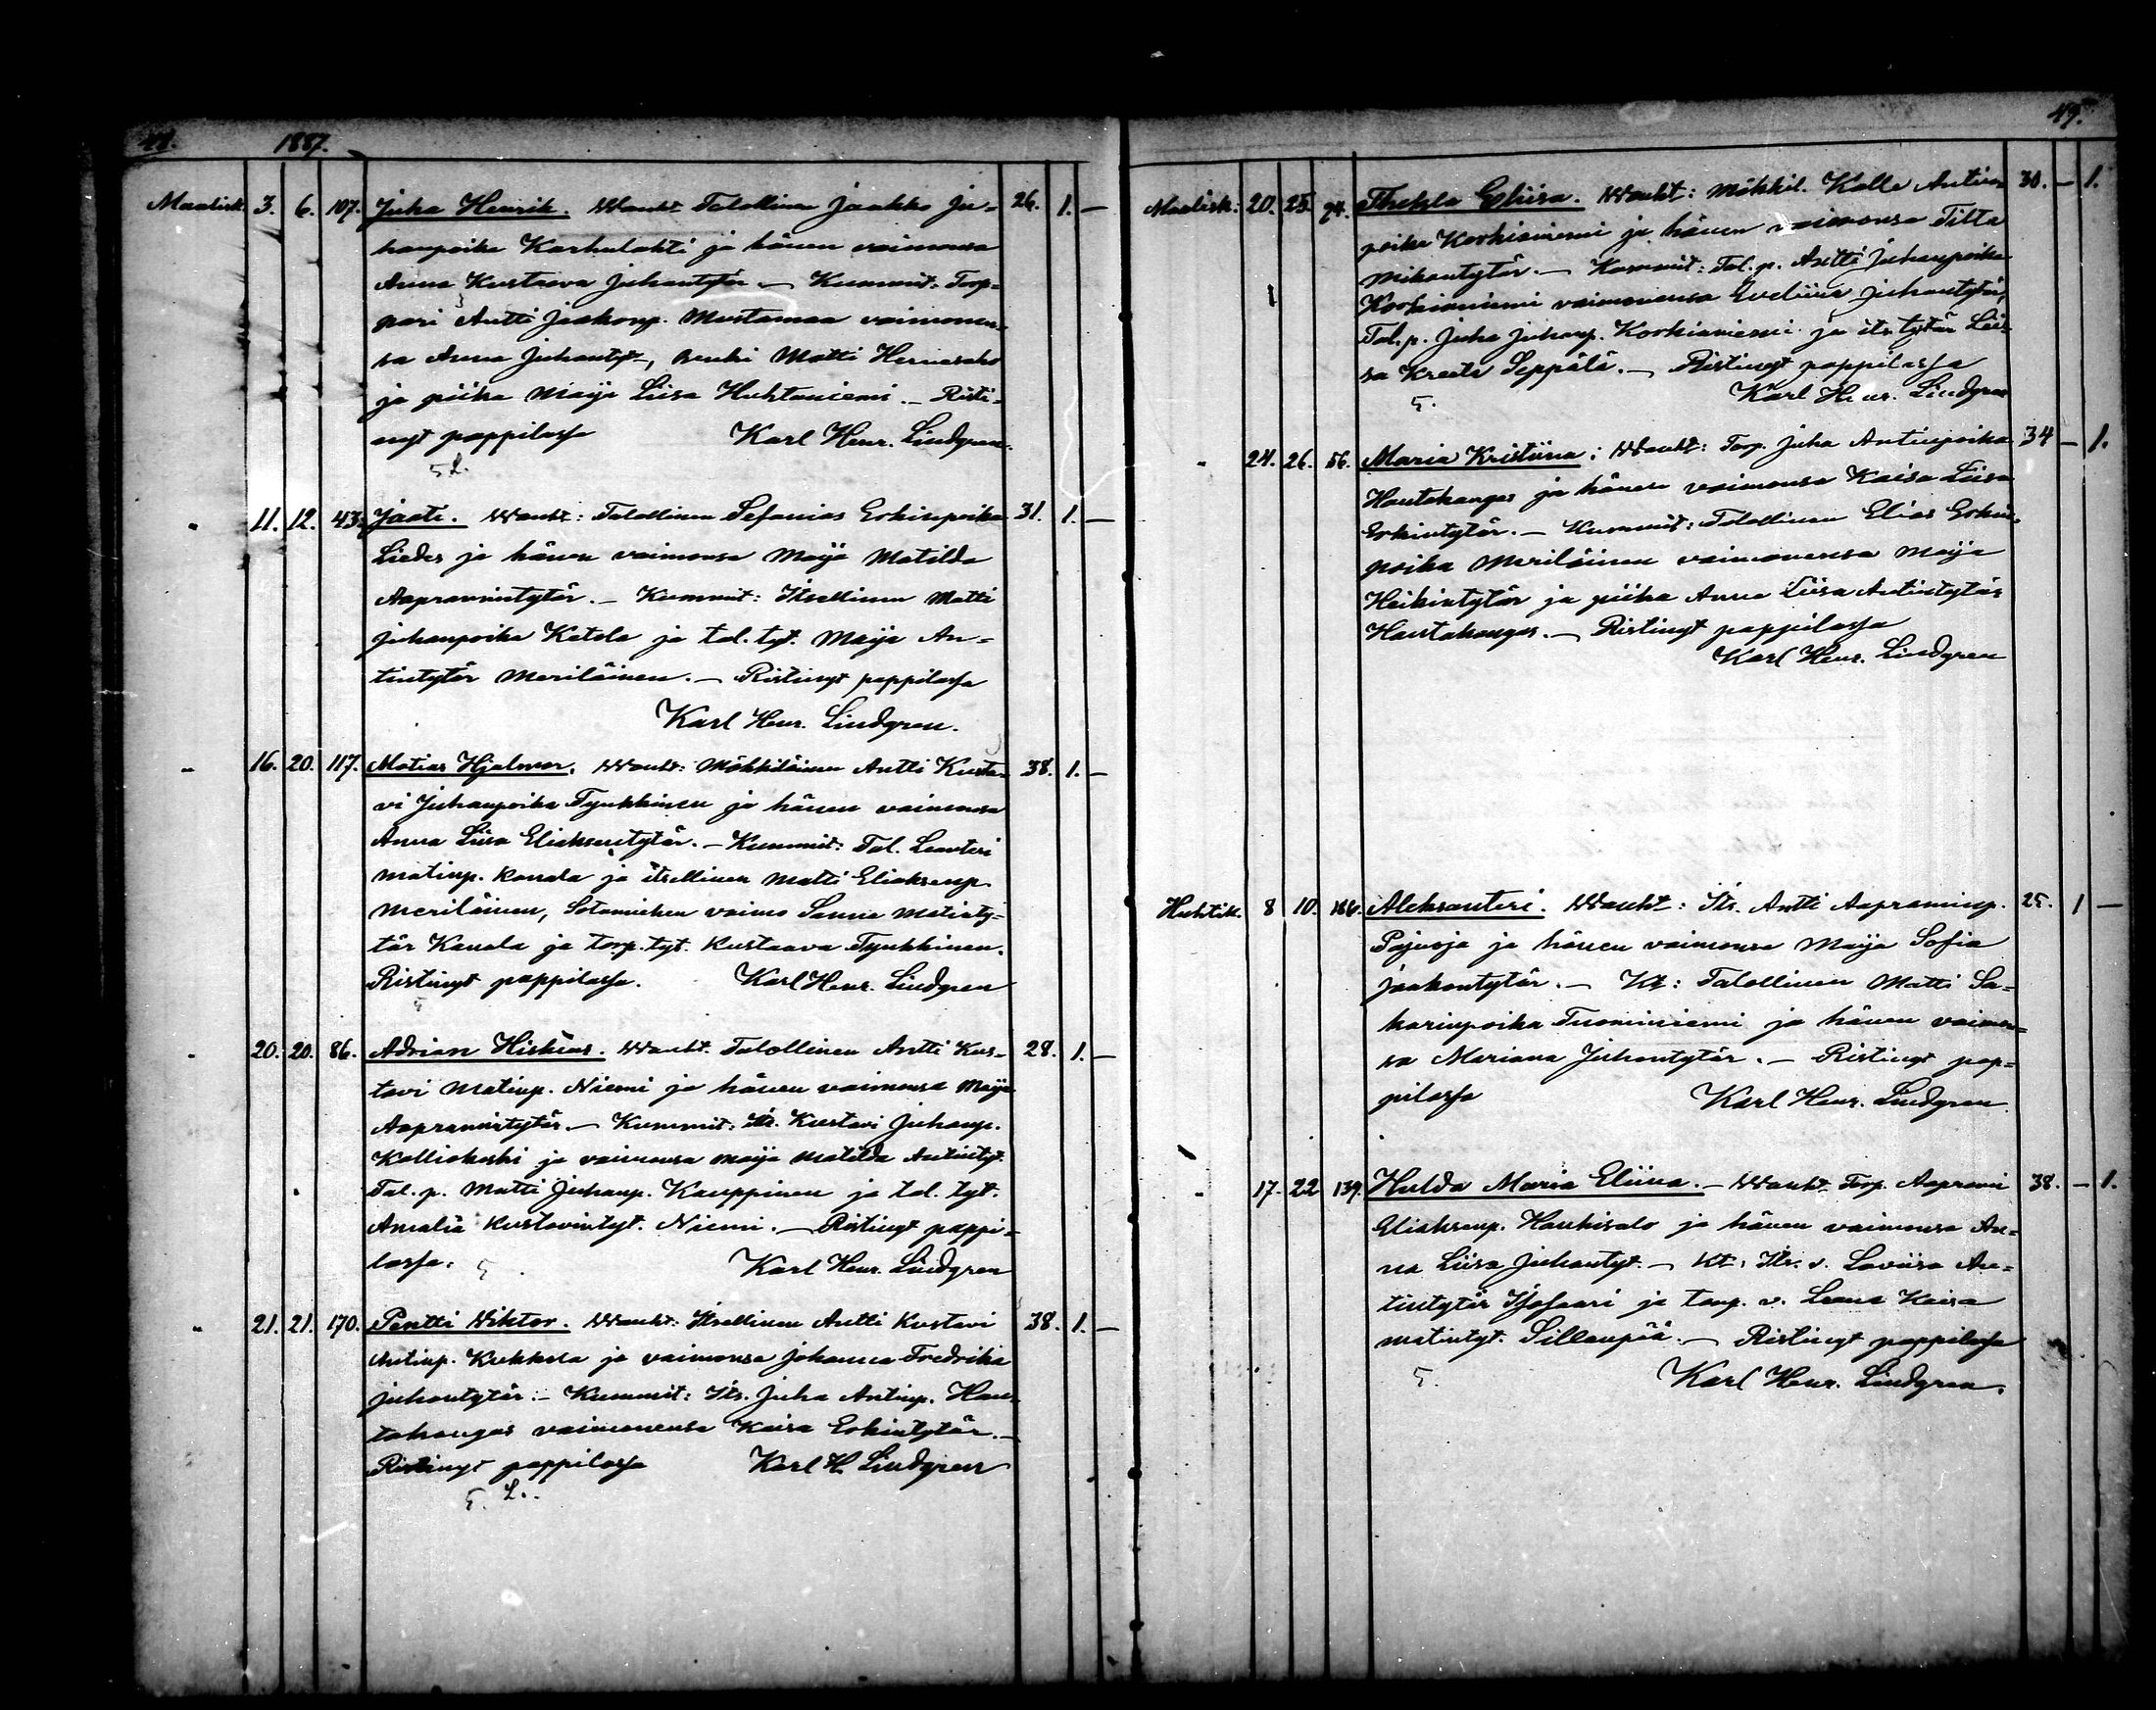 48. 1887.
Maalisk. 3. 6. 107. Juha Henrik. Wanh: Talollinen Jaakko Ju- 26. 1. –
hanpoika Karhulahti ja hänen vaimonsa
Anna Kustaava Juhantytär. – Kummit: Torp-
pari Antti Jaakonp. Mustamaa vaimonen-
sa Anna Juhantyt., renki Matti Hernesaho
ja piika Maija Liisa Huhtaniemi. – Risti-
nyt pappilassa Karl Henr. Lindgren.
" 11. 12. 43. Jaati. Wanht: Talollinen Sefanias Erkinpoika 31. 1. –
Liedes ja hänen vaimonsa Maija Matilda
Aapramintytär. – Kummit: Itsellinen Matti
Juhanpoika Ketola ja tal. tyt. Maija An-
tintytär Meriläinen. – Ristinyt pappilassa
Karl Henr. Lindgren.
" 16. 20. 117. Matias Hjalmar. Wanht: Mökkiläinen Antti Kusta- 38. 1. –
vi Juhanpoika Tynkkinen ja hänen vaimonsa
Anna Liisa Eliaksentytär. – Kummit: Tal. Leanteri
Matinp. Kanala ja itsellinen Matti Eliaksenp.
Meriläinen, Sotamiehen vaimo Sanna Matinty-
tär Kanala ja torp. tyt. Kustaava Tynkkinen.
Ristinyt pappilassa. Karl Henr. Lindgren
" 20. 20. 86. Adrian Hiskias. Wanht. Talollinen Antti Kus- 28. 1. –
tavi Matinp. Niemi ja hänen vaimonsa Maija
Aapramintytär. – Kummit: Its. Kustavi Juhanp.
Kalliokoski ja vaimonsa Maija Matilda Antintyt.
Tal. p. Matti Juhanp. Kauppinen ja tal. tyt.
Amalia Kustavintyt. Niemi. – Ristinyt pappi-
lassa. Karl Henr. Lindgren
" 21. 21. 170. Pentti Wiktor. Wanht: Itsellinen Antti Kustavi 38. 1. –
Antinp. Kukkola ja vaimonsa Johanna Fredrika
Juhontytär. – Kummit: Its. Juha Antinp. Hau-
takangas vaimonensa Kaisa Erkintytär. –
Ristinyt pappilassa Karl H. Lindgren
49.
Maalisk: 20. 25. 94. Thekla Eliisa. Wanht: Mökkil. Kalle Antin- 30. – 1.
poika Korkianiemi ja hänen vaimonsa Tilta
Mikontytär. – Kummit: Tal. p. Antti Juhanpoika
Korkianiemi vaimonensa Eveliina Juhontytär,
Tal. p. Juha Juhanp. Korkianiemi ja its. tytär Lii-
sa Kreeta Seppälä. – Ristinyt pappilassa
Karl Henr. Lindgren
" 24. 26. 56. Maria Kristiina: Wanht: Torp. Juha Antinpoika 34 – 1.
Hautakangas ja hänen vaimonsa Kaisa Liisa
Erkintytär. – Kummit: Talollinen Elias Erkin-
poika Meriläinen vaimonensa Maija
Heikintytär ja piika Anna Liisa Antintytär
Hautakangas. – Ristinyt pappilassa
Karl Henr. Lindgren
Huhtik. 8 10. 166. Aleksanteri. Wanht: Its. Antti Aapraminp. 25. 1 –
Pajuoja ja hänen vaimonsa Maija Sofia
Jaakontytär. – Kt: Talollinen Matti Sa-
karinpoika Tuominiemi ja hänen vaimon-
sa Mariana Juhontytär. – Ristinyt pap-
pilassa Karl Henr. Lindgren.
" 17. 22 139. Hulda Maria Eliina. – Wanht. Torp. Aaprami 38. – 1.
Eliaksenp. Haukisalo ja hänen vaimonsa An-
na Liisa Juhantyt. – Kt: Its. v. Loviisa An-
tintytär Isosaari ja torp. v. Leena Kaisa
Matintyt. Sillanpää. – Ristinyt pappilassa
Karl Henr. Lindgren.